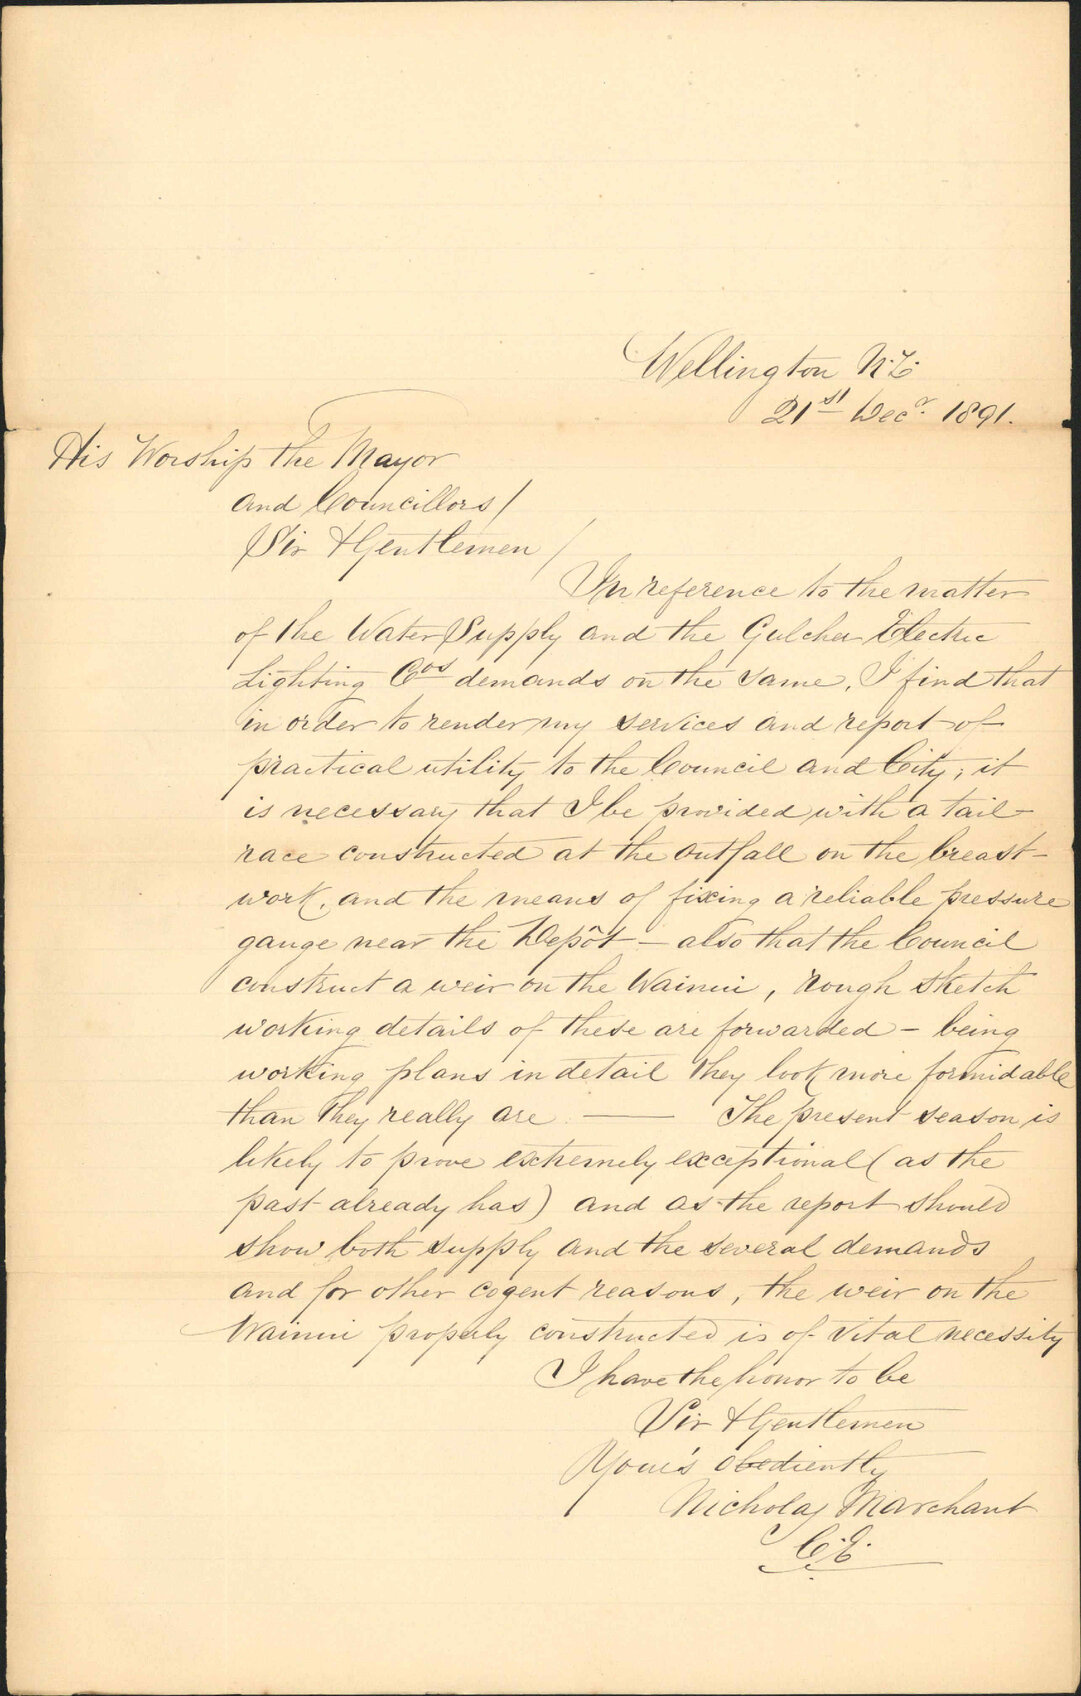 Wellington N.Z.
21st Decr. 1891.
His Worship the Mayor
and Councillors/
Sir & Gentlemen/
In reference to the matter
of the Water Supply and the Gulcher Electric
Lighting Cos demands on the same, I find that
in order to render my services and report of
practical utility to the Council and City; it
is necessary that I be provided with a tail-
race constructed at the outfall on the breast-
work, and the means of fixing a reliable pressure
gauge near the Depôt - also that the Council
construct a weir on the Wainui, rough sketch
working details of these are forwarded - being
working plans in detail they look more formidable
than they really are — The present season is
likely to prove extremely exceptional (as the
past already has) and as the report should
show both supply and the several demands
and for other cogent reasons, the weir on the
Wainui properly constructed is of vital necessity
I have the honor to be
Sir & Gentlemen
Your's obediently
Nicholas Marchant
C.E.